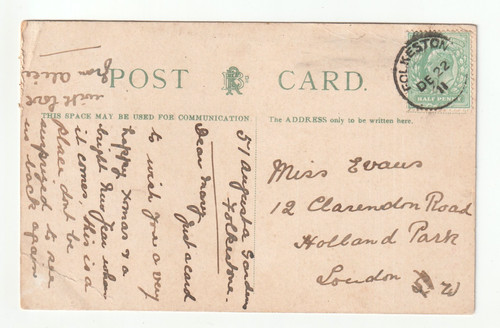 POST CARD.
THIS SPACE MAY BE USED FOR COMMUNICATION
The ADDRESS only to be written here.
FOLKESTONE
DE 22
11
HALF PENNY
Miss Evans
12 Clarendon Road
Holland Park
London
W
57 Augusta Gardens
Folkestone.
Dear Mary Just a card
to wish you a very
happy Xmas & a
bright New Year when
it comes. This is a
place dont be
surprised to see
us back again
with love
from Alice